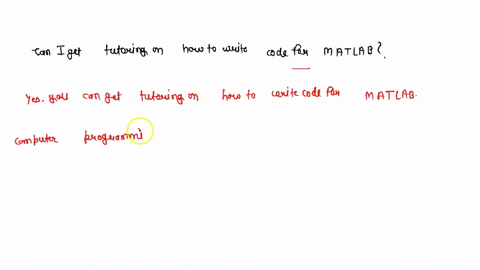 Can I get tutoring on how to write code for MATLAB?
Yes, you can get tutoring on how to write code for MATLAB.
Computer programmi